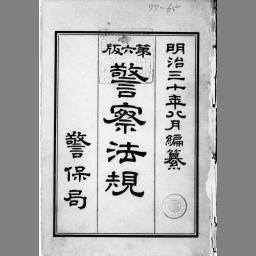 77-65
明治三十年八月編纂
第六版
警察法規
警保局